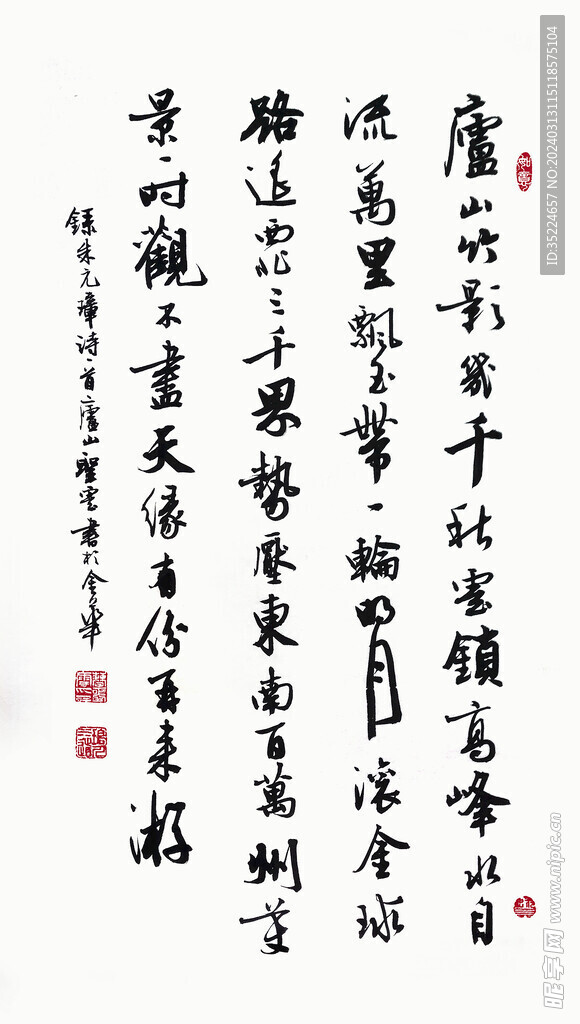 廬山竹影幾千秋雲鎖高峰水自
流萬里飄玉帶一輪明月滾金球
路遙西北三千界勢壓東南百萬州美
景一时觀不盡天緣有份再来游
錄朱元璋诗一首廬山聖雲書於金華
如意
ID:35224657 NO:20240313115118575104
昵享网 www.nipic.cn